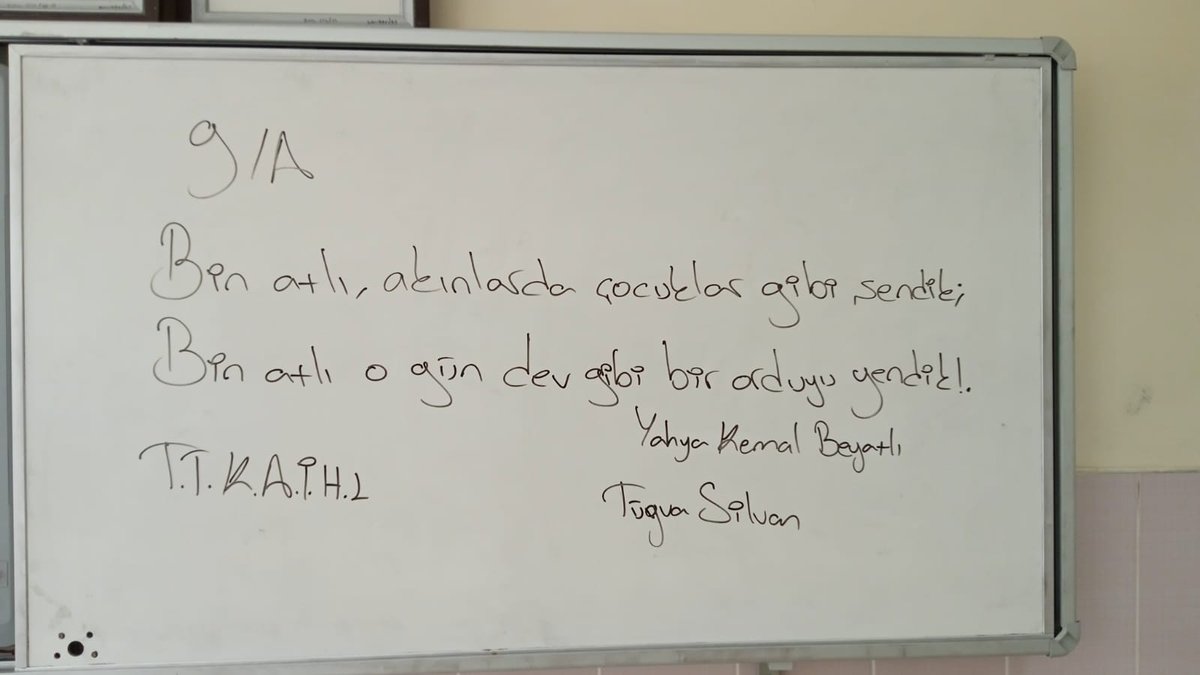 9/A
Bin atlı, akınlarda çocuklar gibi şendik;
Bin atlı o gün dev gibi bir orduyu yendik!.
Yahya Kemal Beyatlı
T.T.K.A.İ.H.L
Tügva Silvan